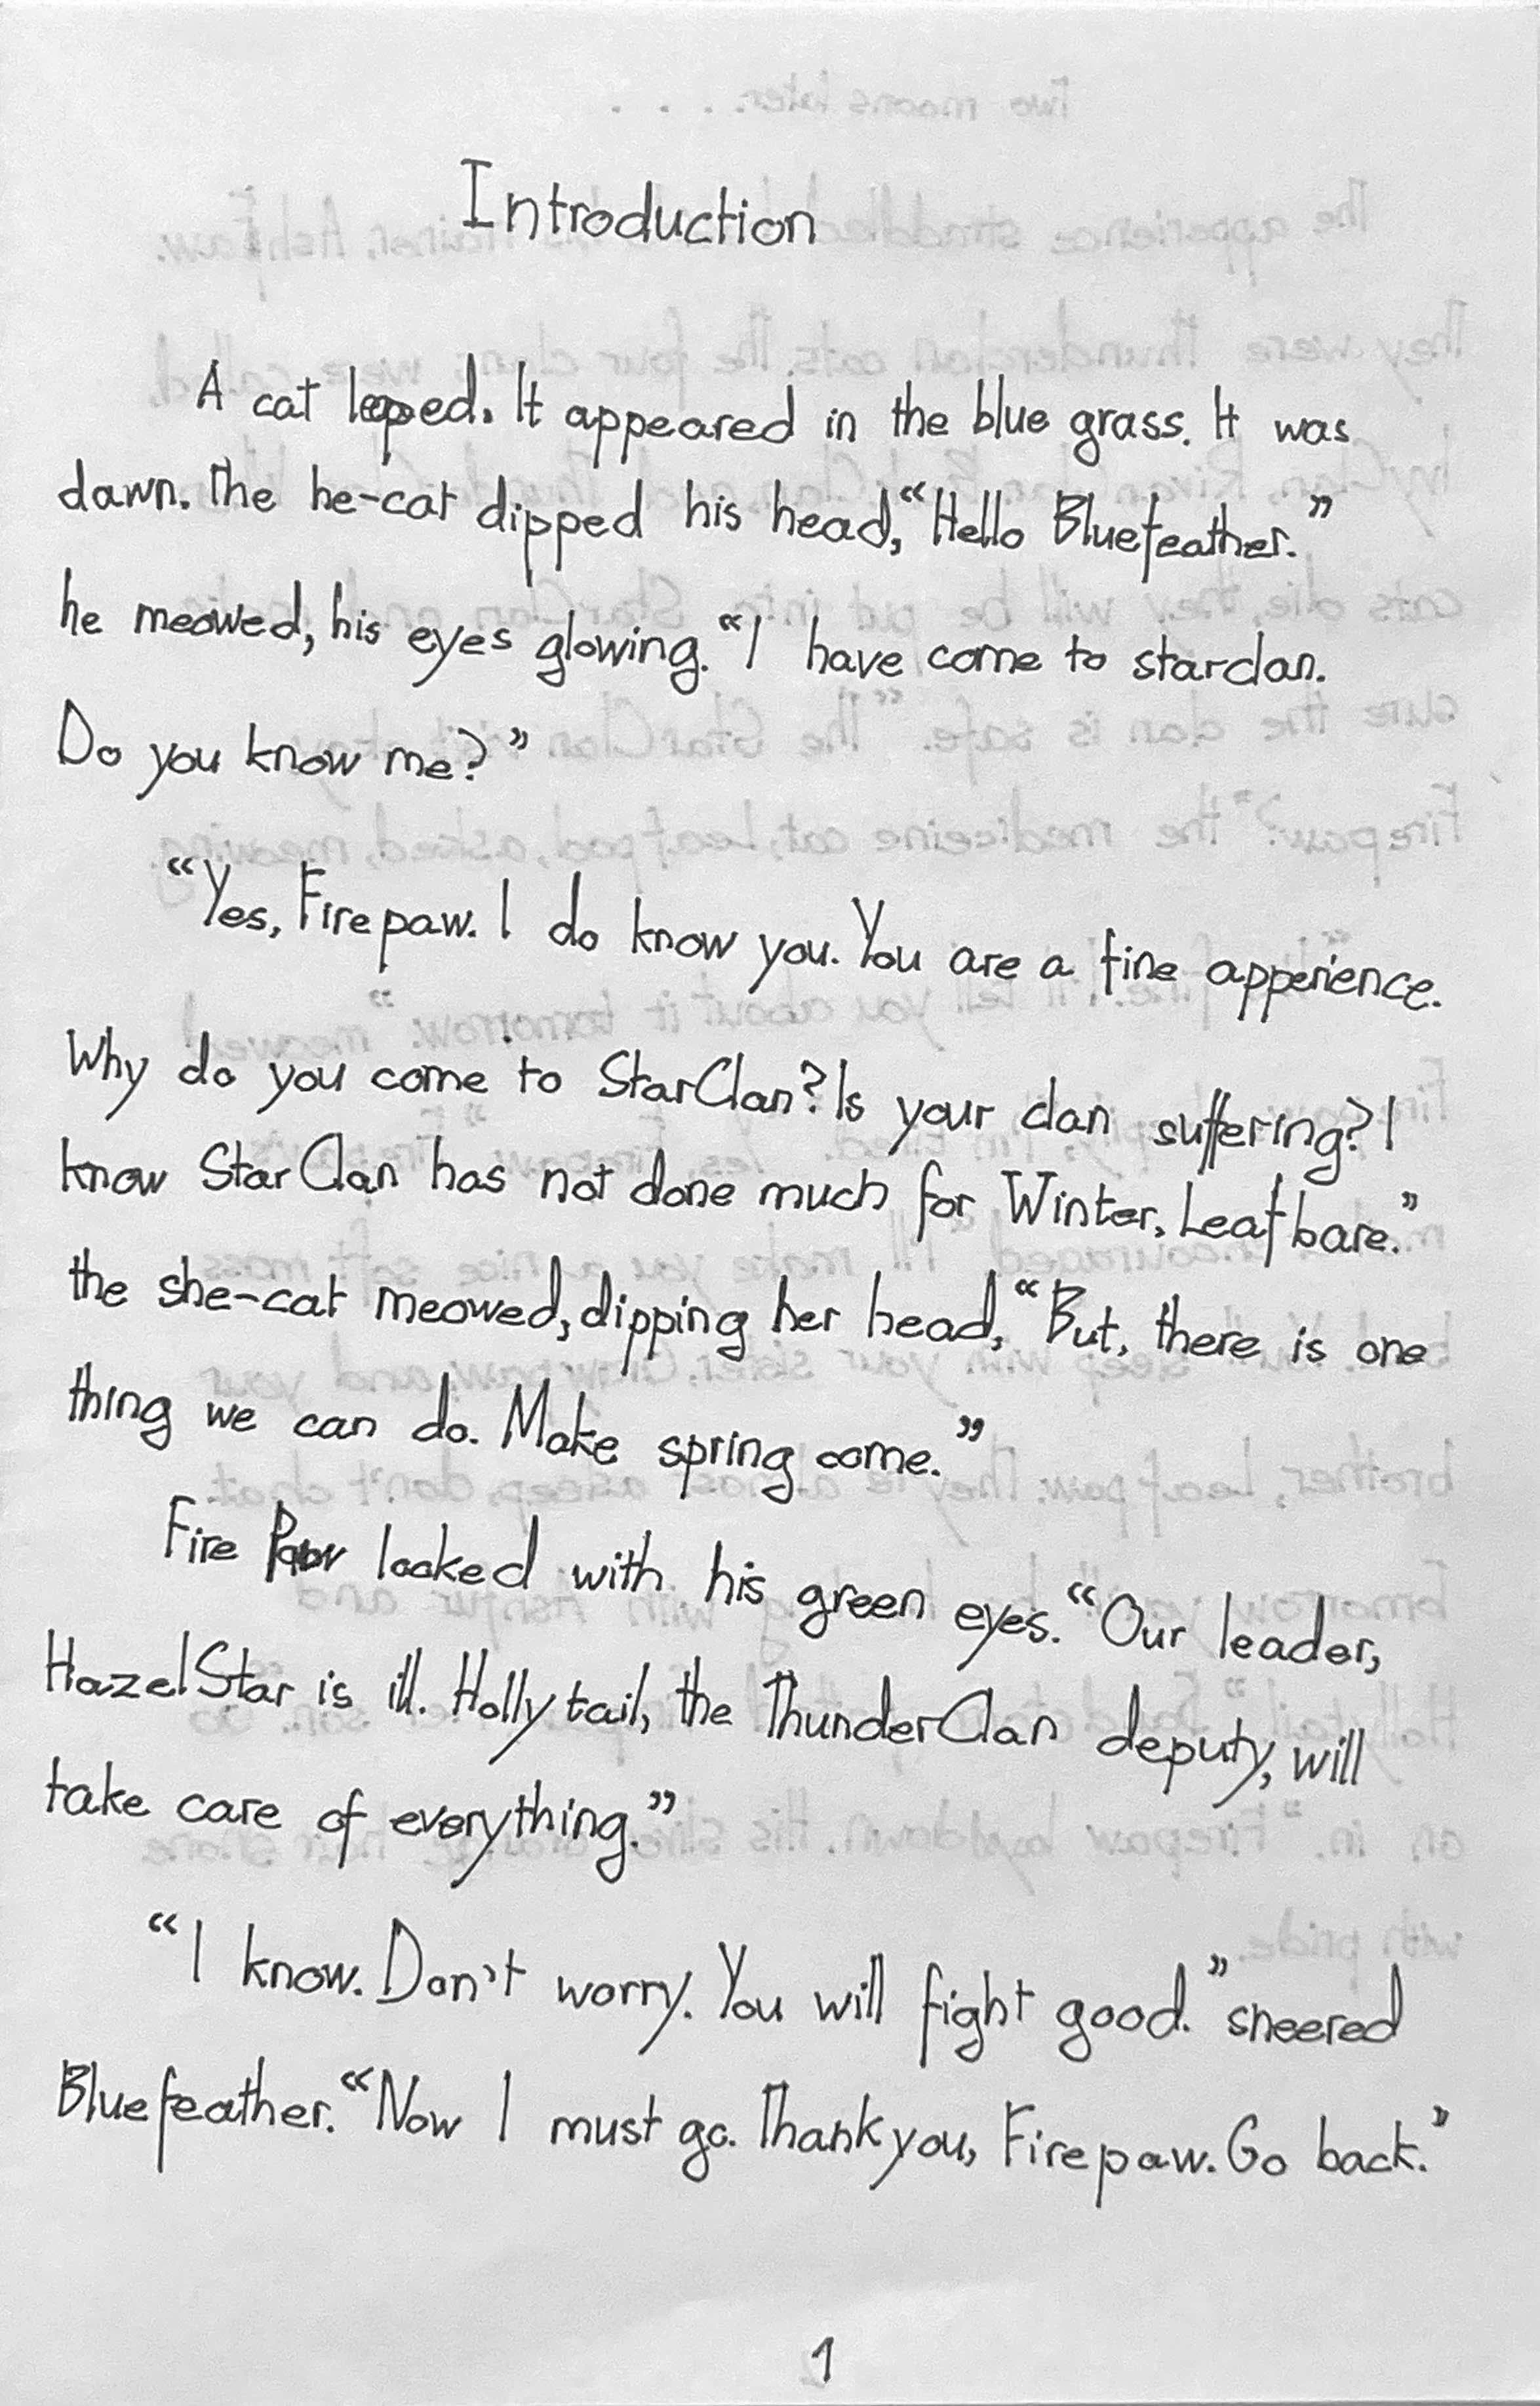 Introduction
A cat leaped. It appeared in the blue grass. It was
dawn. The he-cat dipped his head, “Hello Bluefeather.”
he meowed, his eyes glowing. “I have come to starclan.
Do you know me?”
“Yes, Firepaw. I do know you. You are a fine apperience.
Why do you come to StarClan? Is your clan suffering? I
know StarClan has not done much for Winter, Leafbare.”
the she-cat meowed, dipping her head, “But, there is one
thing we can do. Make spring come.”
Fire Paw looked with his green eyes. “Our leader,
HazelStar is ill. Hollytail, the ThunderClan deputy, will
take care of everything.”
“I know. Don't worry. You will fight good.” sneered
Bluefeather. “Now I must go. Thank you, Firepaw. Go back.”
1